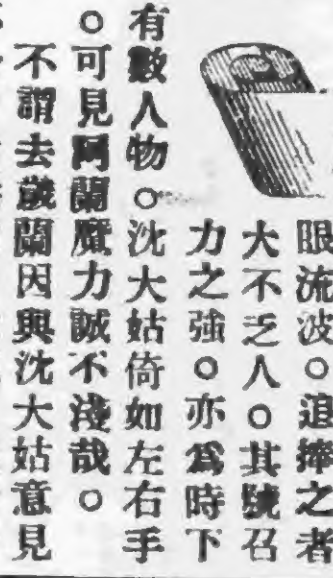 眼流波。追捧之者
大不乏人。其號召
力之強。亦爲時下
有數人物。沈大姑倚如左右手
。可見阿蘭魔力誠不淺哉。
不謂去歲蘭因與沈大姑意見